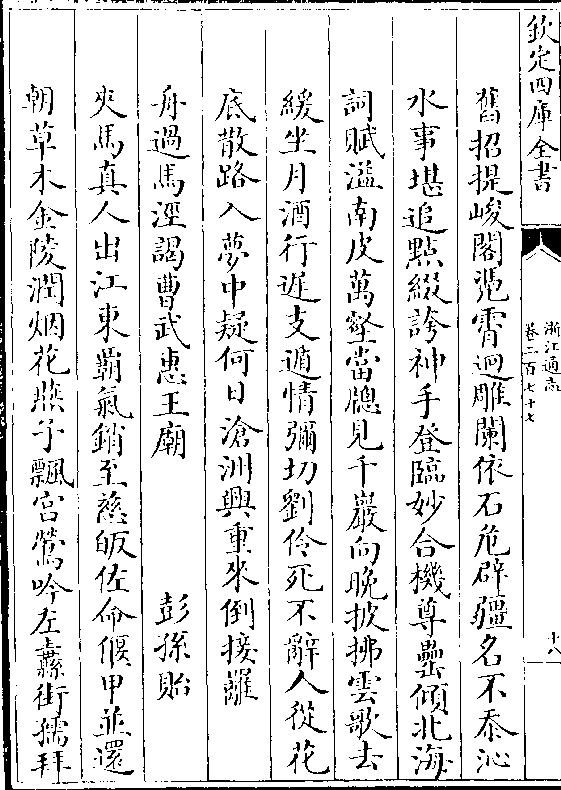 欽定四庫全書
浙江通志
卷二百七十七
十八
舊招提峻閣凴霄迥雕闌依石危辟疆名不忝沁
水事堪追點綴誇神手登臨妙合機尊罍傾北海
詞賦溢南皮萬壑當牕見千巖向晚披拂雲歌去
緩坐月酒行遲支遁情彌切劉伶死不辭人從花
底散路入夢中疑何日滄洲興重來倒接䍦
舟過馬溼謁曹武惠王廟　彭孫貽
夾馬真人出江東霸氣銷至慈皈佐命偃甲並還
朝草木金陵潤烟花燕子飄宫鶯吟左纛街孺拜